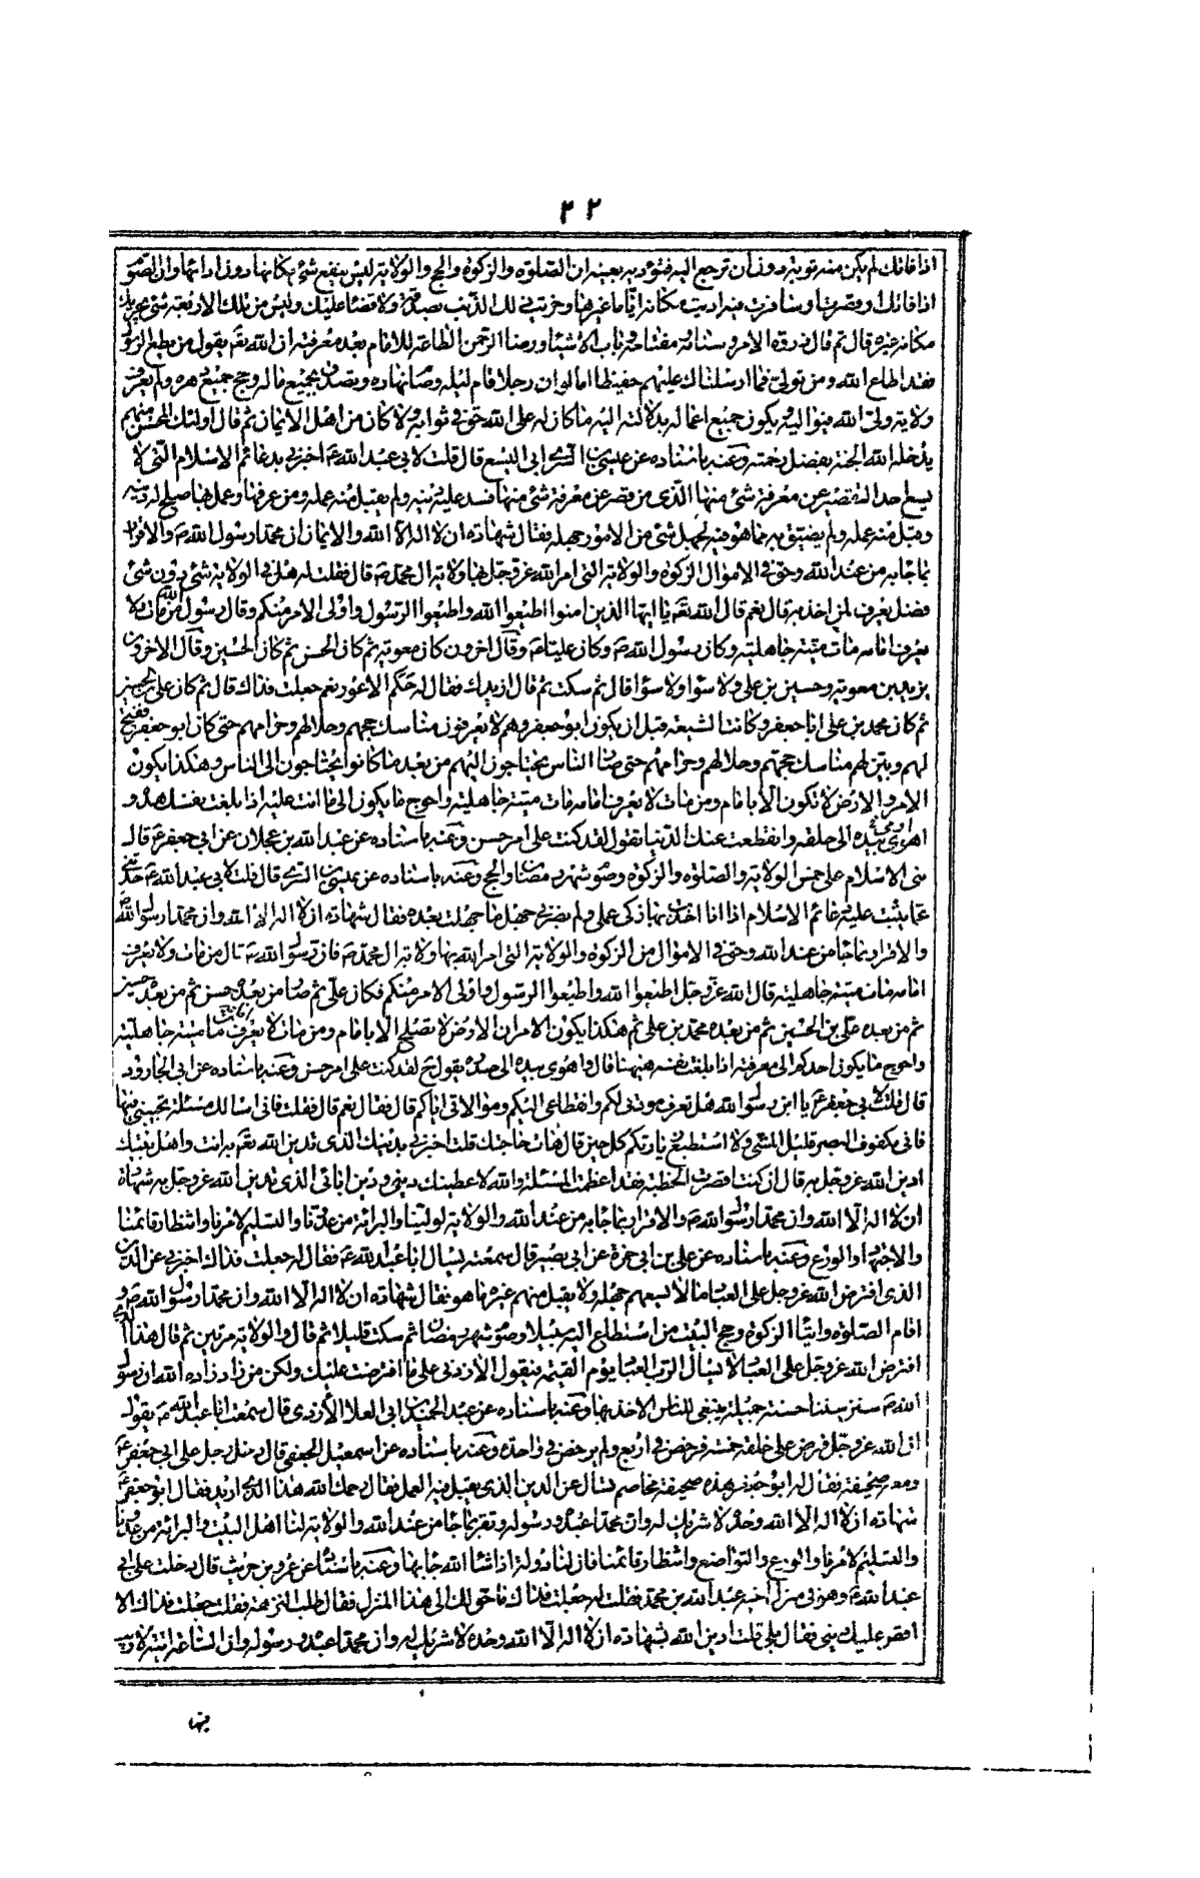 ٢٢
اذا فاتك لم يكن منه توبة دون ان ترجع اليه فتؤديه بعينه ان الصلوة والزكوة والحج والولاية ليس ينفع شئ مكانها دون ادائها وان الصوم
اذا فاتك او قصرت او سافرت فيه اديت مكانه اياما غيرها وجزيت ذلك الذنب بصدقة ولا قضاء عليك وليس من تلك الاربعة شئ يجزيك
مكانه غيره قال ثم قال ذروة الامر وسنامه ومفتاحه وباب الاشياء ورضا الرحمن الطاعة للامام بعد معرفته ان الله تعالى يقول من يطع الرسول
فقد اطاع الله ومن تولى فما ارسلناك عليهم حفيظا اما لو ان رجلا قام ليله وصام نهاره وتصدق بجميع ماله وحج جميع دهره ولم يعرف
ولاية ولى الله فيواليه ويكون جميع اعماله بدلالته اليه ما كان له على الله حق في ثوابه ولا كان من اهل الايمان ثم قال اولئك المحسن منهم
يدخله الله الجنة بفضل رحمته وعنه باسناده عن عيسى بن السرى ابى اليسع قال قلت لابي عبد الله ع اخبرني بدعائم الاسلام التى لا
يسع احد التقصير عن معرفة شئ منها الذى من قصر عن معرفة شئ منها فسد عليه دينه ولم يقبل منه عمله ومن عرفها وعمل بها صلح له دينه
وقبل منه عمله ولم يضيق به مما هو فيه لجهل شئ من الامور جهله فقال شهادة ان لا اله الا الله والايمان ان محمدا رسول الله ص والاقرار
بما جاء به من عند الله وحق في الاموال الزكوة والولاية التى امر الله عز وجل بها ولاية ال محمد ص قال فقلت له هل في الولاية شئ دون شئ
فضل يعرف لمن اخذ به قال نعم قال الله تعالى يا ايها الذين امنوا اطيعوا الله واطيعوا الرسول واولى الامر منكم وقال رسول الله ص من مات لا
يعرف امامه مات ميتة جاهلية وكان رسول الله ص وكان عليا ع وقال اخرون كان معوية ثم كان الحسن ثم كان الحسين وقال الاخرون
يزيد بن معوية وحسين بن على ولا سواء ولا سواء قال ثم سكت ثم قال ازيدك فقال له حكم الاعور نعم جعلت فداك قال ثم كان على بن الحسين
ثم كان محمد بن على ابا جعفر وكانت الشيعة قبل ان يكون ابو جعفر وهم لا يعرفون مناسك حجهم وحلالهم وحرامهم حتى كان ابو جعفر ففتح
لهم وبين لهم مناسك حجهم وحلالهم وحرامهم حتى صار الناس يحتاجون اليهم من بعد ما كانوا يحتاجون الى الناس وهكذا يكون
الامر والارض لا تكون الا بامام ومن مات لا يعرف امامه مات ميتة جاهلية واحوج ما يكون الى ما انت عليه اذا بلغت نفسك هذه و
اهوى بيده الى حلقه وانقطعت عنك الدنيا تقول لقد كنت على امر حسن وعنه باسناده عن عبد الله بن عجلان عن ابي جعفر ع قال
بنى الاسلام على خمس الولاية والصلوة والزكوة وصوم شهر رمضان والحج وعنه باسناده عن عيسى بن السرى قال قلت لابي عبد الله ع حدثني
عما بنيت عليه دعائم الاسلام اذا انا اخذت بها زكى عملى ولم يضرني جهل ما جهلت بعده فقال شهادة ان لا اله الا الله وان محمدا رسول الله ص
والاقرار بما جاء من عند الله وحق في الاموال من الزكوة والولاية التى امر الله بها ولاية ال محمد ص فان رسول الله ص قال من مات ولا يعرف
امامه مات ميتة جاهلية قال الله عز وجل اطيعوا الله واطيعوا الرسول واولى الامر منكم فكان على ثم صار من بعده حسن ثم من بعده حسين
ثم من بعده على بن الحسين ثم من بعده محمد بن على ثم هكذا يكون الامر ان الارض لا تصلح الا بامام ومن مات لا يعرف امامه مات ميتة جاهلية
واحوج ما يكون احدكم الى معرفته اذا بلغت نفسه هيهنا قال واهوى بيده الى صدره يقول ح لقد كنت على امر حسن وعنه باسناده عن ابى الجارود
قال قلت لابي جعفر ع يا ابن رسول الله هل تعرف مودتي لكم وانقطاعى اليكم وموالاتى اياكم قال فقال نعم قال فقلت فانى اسالك مسئلة تجيبني فيها
فانى مكفوف البصر قليل المشى ولا استطيع زيارتكم كل حين قال هات حاجتك قلت اخبرني بدينك الذى تدين الله تعالى به انت واهل بيتك
ادين الله عز وجل به قال ان كنت اقصرت الخطبة فقد اعظمت المسئلة والله لاعطينك ديني ودين ابائى الذى ندين الله عز وجل به شهادة
ان لا اله الا الله وان محمدا رسول الله ص والاقرار بما جاء به من عند الله والولاية لولينا والبرائة من عدونا والتسليم لامرنا وانتظار قائمنا
والاجتهاد والورع وعنه باسناده عن على بن ابى حمزة عن ابى بصير قال سمعته يسال ابا عبد الله ع فقال له جعلت فداك اخبرنى عن الدين
الذى افترض الله عز وجل على العباد ما لا يسعهم جهله ولا يقبل منهم غيره ما هو فقال شهادة ان لا اله الا الله وان محمدا رسول الله ص و
اقام الصلوة وايتاء الزكوة وحج البيت من استطاع اليه سبيلا وصوم شهر رمضان ثم سكت قليلا ثم قال والولاية مرتين ثم قال هذا الذى
افترض الله عز وجل على العباد لا يسال الرب العباد يوم القيمة فيقول الا زدتنى على ما افترضت عليك ولكن من زاد زاده الله ان رسول
الله ص سن سننا حسنة جميلة ينبغى للناس الاخذ بها وعنه باسناده عن عبد الحميد بن ابى العلا الازدى قال سمعت ابا عبد الله ع يقول
ان الله عز وجل فرض على خلقه خمسا فرخص في اربع ولم يرخص في واحدة وعنه باسناده عن اسمعيل الجعفى قال دخل رجل على ابى جعفر ع
ومعه صحيفة فقال له ابو جعفر هذه صحيفة مخاصم سال عن الدين الذى يقبل فيه العمل فقال رحمك الله هذا الذى اريد فقال ابو جعفر ع
شهادة ان لا اله الا الله وحده لا شريك له وان محمدا عبده ورسوله وتقر بما جاء من عند الله والولاية لنا اهل البيت والبرائة من عدونا
والتسليم لامرنا والورع والتواضع وانتظار قائمنا فان لنا دولة اذا شاء الله جاء بها وعنه باسناده عن عمرو بن حريث قال دخلت على ابى
عبد الله ع وهو في منزل اخيه عبد الله بن محمد فقلت له جعلت فداك ما حولك الى هذا المنزل فقال طلب النزهة فقلت جعلت فداك الا
اقص عليك دينى فقال بلى قلت ادين الله بشهادة ان لا اله الا الله وحده لا شريك له وان محمدا عبده ورسوله وان الساعة اتية لا ريب
فيها